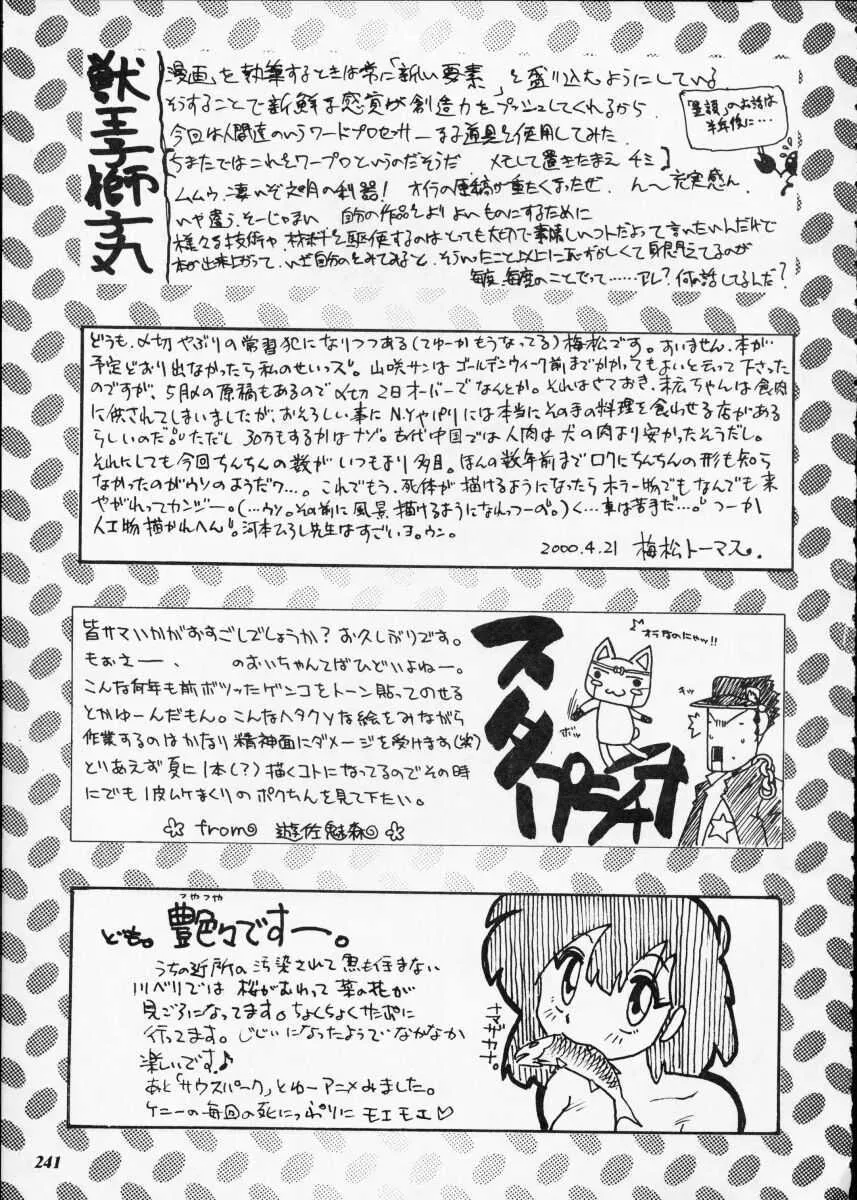 獣王子獅子丸
漫画を執筆するときは常に「新しい要素」を盛り込むようにしている
そうすることで新鮮な感覚が創造力をプッシュしてくれるから
今回は人間達のいうワードプロセッサーなる道具を使用してみた
[ちまたではこれをワープロというのだそうだ メモして置きたまえ チミ]
ムムウ、凄いぞ文明の利器! オイラの原稿が重たくなったぜ、ん〜充実感ん、
いや違う、そーじゃない 自分の作品をよりよいものにするために
様々な技術や材料を駆使するのはとっても大切で素晴しいコトだよって言いたいんだけど
本が出来上がって、いざ自分のをみてみると、そういったこと以上にはずかしくて身悶えてるのが
毎度、毎度のことでって……アレ?何の話してるんだ?
のお話は
半年後に…
どうも、〆切やぶりの常習犯になりつつある(てゆーかもうなってる)梅松です。すいません、本が…
予定どおり出なかったら私のせいっス。山咲サンはゴールデンウィーク前までかかってもよいと云って下さった
のですが、5月〆の原稿もあるので〆切2日オーバーでなんとか。それはさておき、末広ちゃんは食肉
に供されてしまいましたが、おそろしい事にN.Yやパリには本当にそのまま料理を食わせる店がある
らしいのだ。ただし30万もするかはナゾ。古代中国では人肉は犬の肉より安かったそうだし。
それにしても今回ちんちんの数がいつもより多目。ほんの数年前までロクにちんちんの形も知ら
なかったのがウソのようだワ…。これでもう、死体が描けるようになったらホラー物でもなんでも来
やがれってカンジー。(…ウン。その前に風景描けるようになれっつーの。)く…車は苦手だ…。つーか
人工物描かれへん。河本ひろし先生はすごいヨ。ウン。
2000.4.21 梅松トーマス。
皆サマいかがおすごしでしょうか? お久しぶりです。
もぉえー、 のおいちゃんてばひどいよねー。
こんな何年も前ボツったゲンコをトーン貼ってのせる
とかゆーんだもん。こんなヘタクソな絵をみながら
作業するのはかなり精神面にダメージを受けます(笑)
とりあえず夏に1本(?)描くコトになってるのでその時
にでも1皮ムケまくりのボクちんを見て下さい。
☆ from 遊佐魅森 ☆
オラなのにャッ!!
ども。艶々ですー。
つやつや
うちの近所の汚染されて魚も住まない
川べりでは 桜がおわって菜の花が
見ごろになってます。ちょくちょくサンポに
行ってます。じじぃになったようでなかなか
楽しいです♪
あと「サウスパーク」とゆーアニメみました。
ケニーの毎回の死にっぷりにモエモエ♡
ナマザカナ。
241